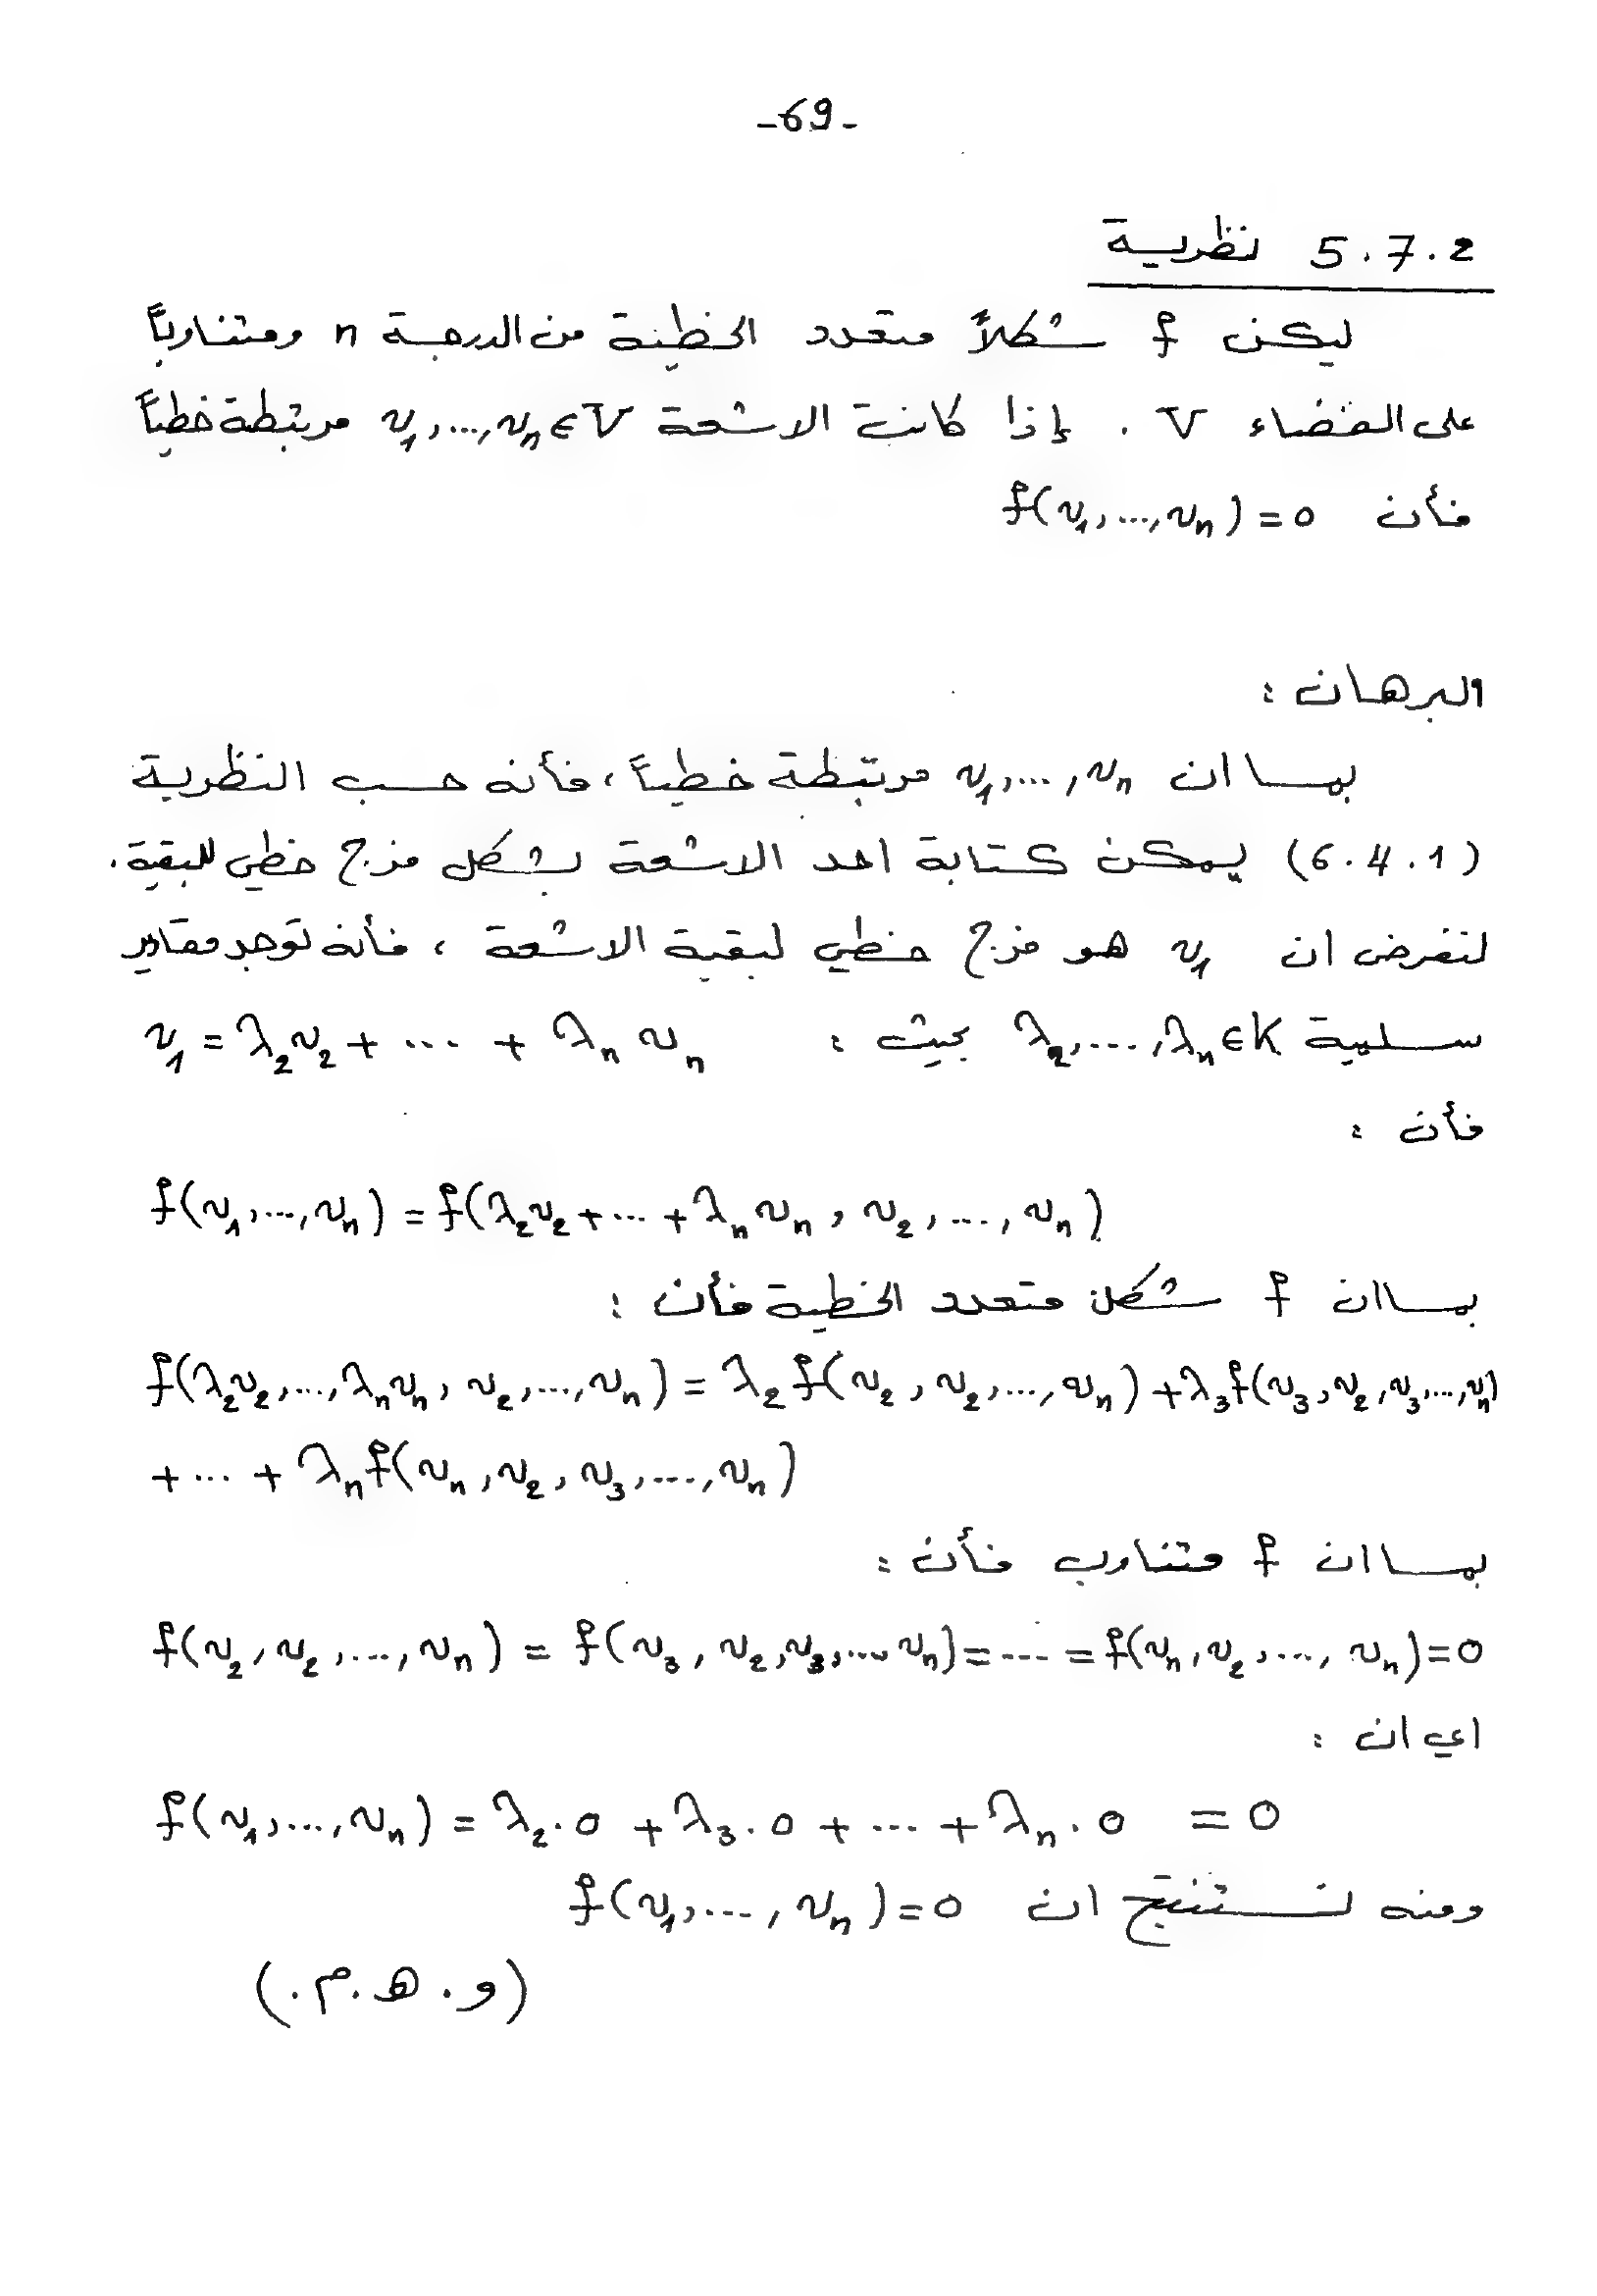 -69-
5.7.2 نظرية
ليكن f شكلاً متعدد الخطية من الدرجة n ومتناوباً
على الفضاء V . إذا كانت الاشعة v₁,...,vₙ∈V مرتبطة خطياً
فأن f(v₁,...,vₙ)=0
البرهان :
بما ان v₁,...,vₙ مرتبطة خطياً، فأنه حسب النظرية
(6.4.1) يمكن كتابة احد الاشعة بشكل مزج خطي للبقية.
لنفرض ان v₁ هو مزج خطي لبقية الاشعة ، فأنه توجد مقادير
سلمية λ₂,...,λₙ∈K بحيث : v₁=λ₂v₂+...+λₙvₙ
فأن :
f(v₁,...,vₙ)=f(λ₂v₂+...+λₙvₙ, v₂,...,vₙ)
بما ان f شكل متعدد الخطية فأن :
f(λ₂v₂,...,λₙvₙ, v₂,...,vₙ)=λ₂f(v₂,v₂,...,vₙ)+λ₃f(v₃,v₂,v₃,...,vₙ)
+...+λₙf(vₙ,v₂,v₃,...,vₙ)
بما ان f متناوب فأن :
f(v₂,v₂,...,vₙ)=f(v₃,v₂,v₃,...,vₙ)=...=f(vₙ,v₂,...,vₙ)=0
اي ان :
f(v₁,...,vₙ)=λ₂.0+λ₃.0+...+λₙ.0 =0
ومنه نستنتج ان f(v₁,...,vₙ)=0
(و.ه.م.)